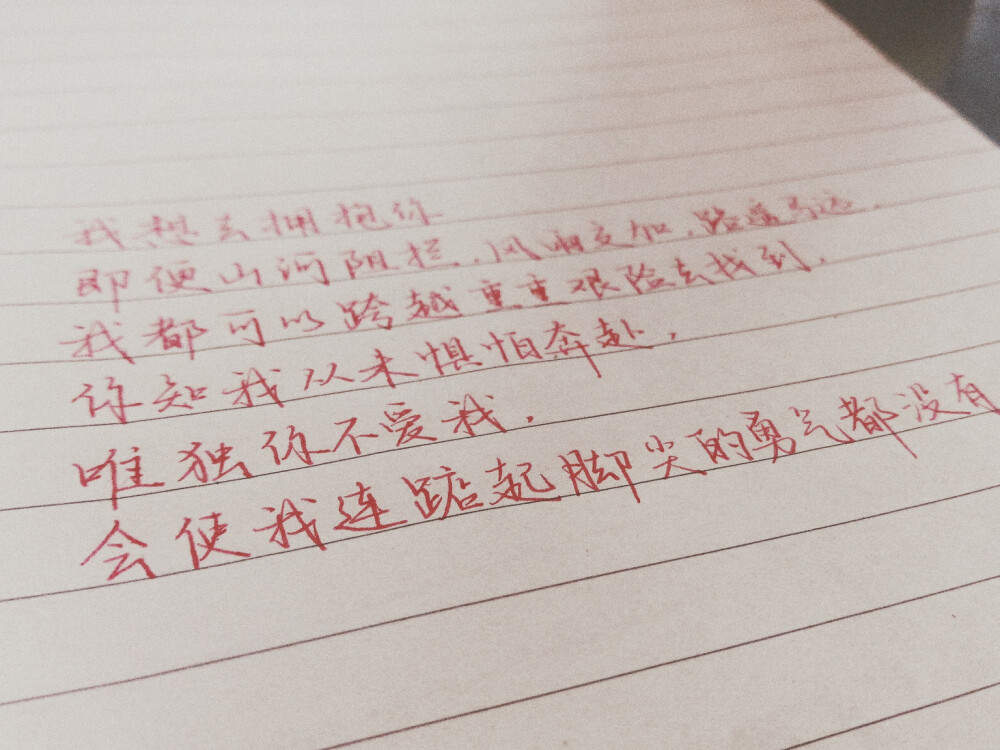 我想去拥抱你
即便山河阻拦.风雨交加.路遥马远.
我都可以跨越重重艰险去找到.
你知我从未惧怕奔赴.
唯独你不爱我.
会使我连踮起脚尖的勇气都没有